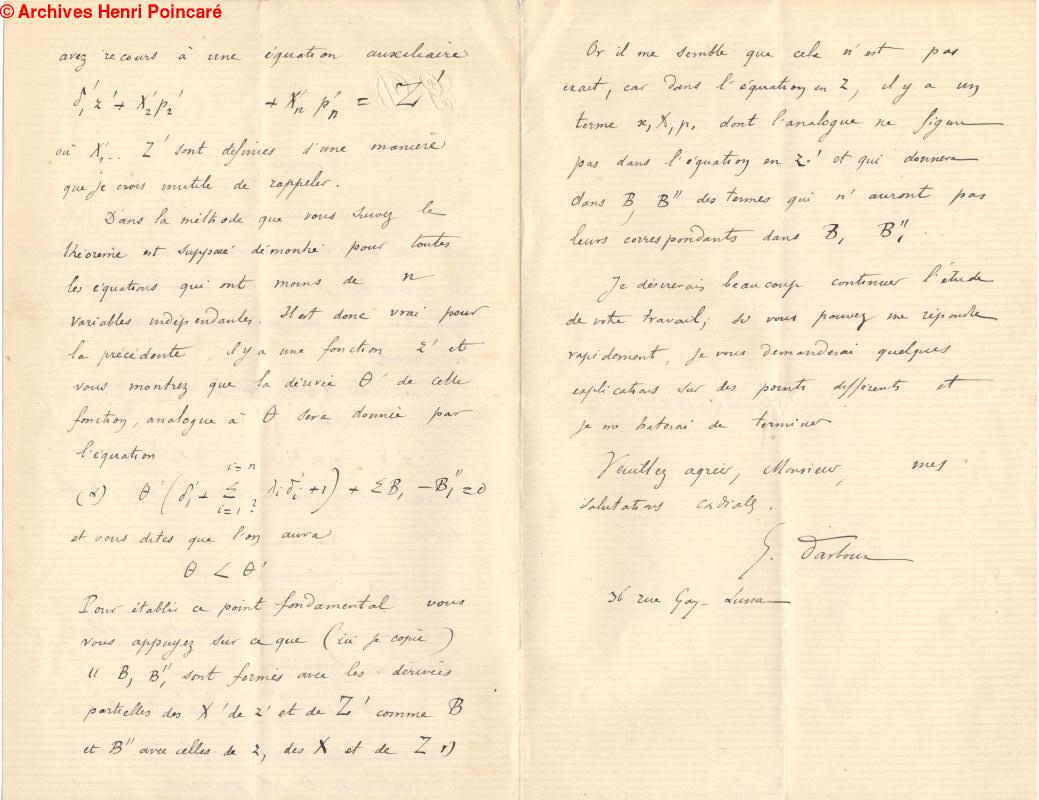 © Archives Henri Poincaré
avez recours à une équation auxiliaire
δ₁' z' + X₂' p₂' + Xₙ' p'ₙ = Z'
où X₁'... Z' sont définies d'une manière
que je crois inutile de rappeler.
Dans la méthode que vous suivez le
théorème est supposé démontré pour toutes
les équations qui ont moins de n
variables indépendantes. Il est donc vrai pour
la précédente, il y a une fonction z' et
vous montrez que la dérivée θ' de cette
fonction, analogue à θ sera donnée par
l'équation
(α) θ' (δ₁' + Σ_{i=1?}^{i=n} λi δi' + 1) + Σ B₁ - B₁" = 0
et vous dites que l'on aura
θ < θ'
Pour établir ce point fondamental vous
vous appuyez sur ce que (ici je copie)
" B₁ B₁" sont formés avec les dérivées
partielles des X' de z' et de Z' comme B
et B" avec celles de z, des X et de Z "
Or il me semble que cela n'est pas
exact, car dans l'équation en Z, il y a un
terme x₁ X₁ p₁ dont l'analogue ne figure
pas dans l'équation en z' et qui donnera
dans B, B" des termes qui n'auront pas
leurs correspondants dans B₁ B₁"
Je désirerais beaucoup continuer l'étude
de votre travail; si vous pouvez me répondre
rapidement, je vous demanderai quelques
explications sur des points différents et
je me haterai de terminer
Veuillez agréer, Monsieur, mes
salutations cordiales.
G. Darboux
36 rue Gay-Lussac